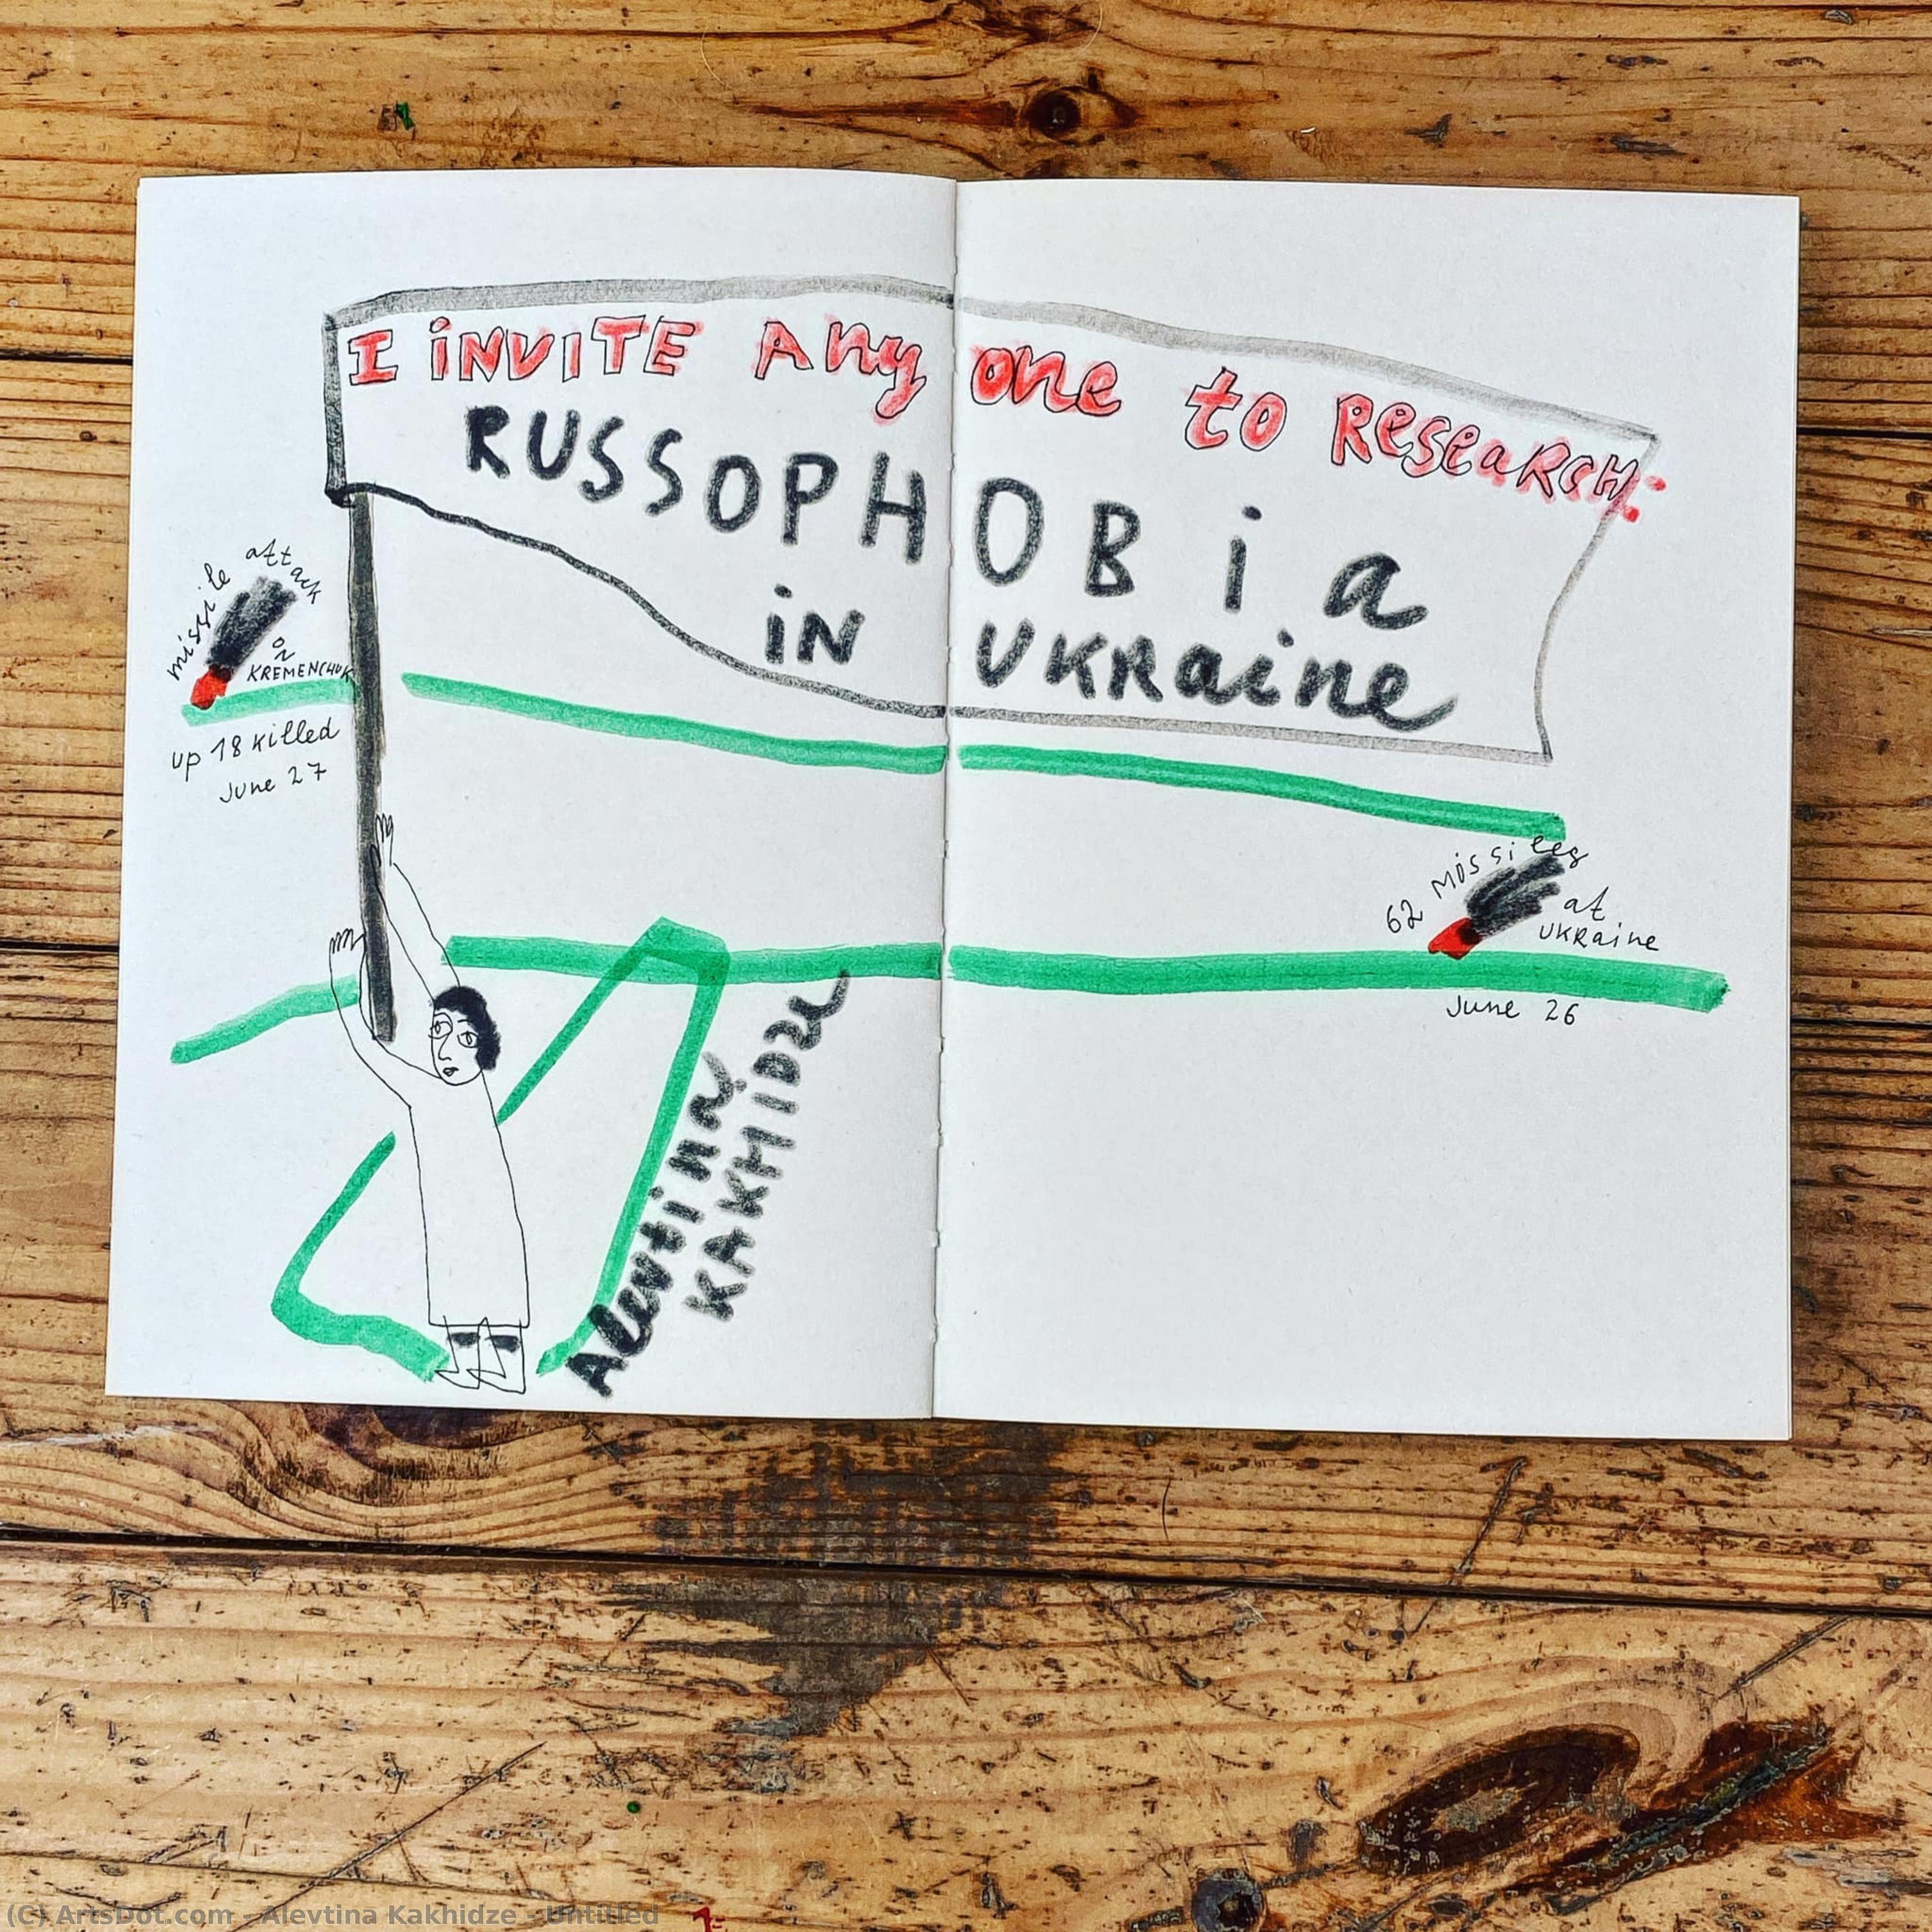 I INVITE ANY ONE TO RESEARCH:
RUSSOPHOBiA
iN UKRaine
missile attack
ON
KREMENCHUK
up 18 killed
June 27
62 Missiles
at
UKRaine
June 26
Alevtina
KAKHIDZE
(C) ArtsDot.com - Alevtina Kakhidze - Untitled